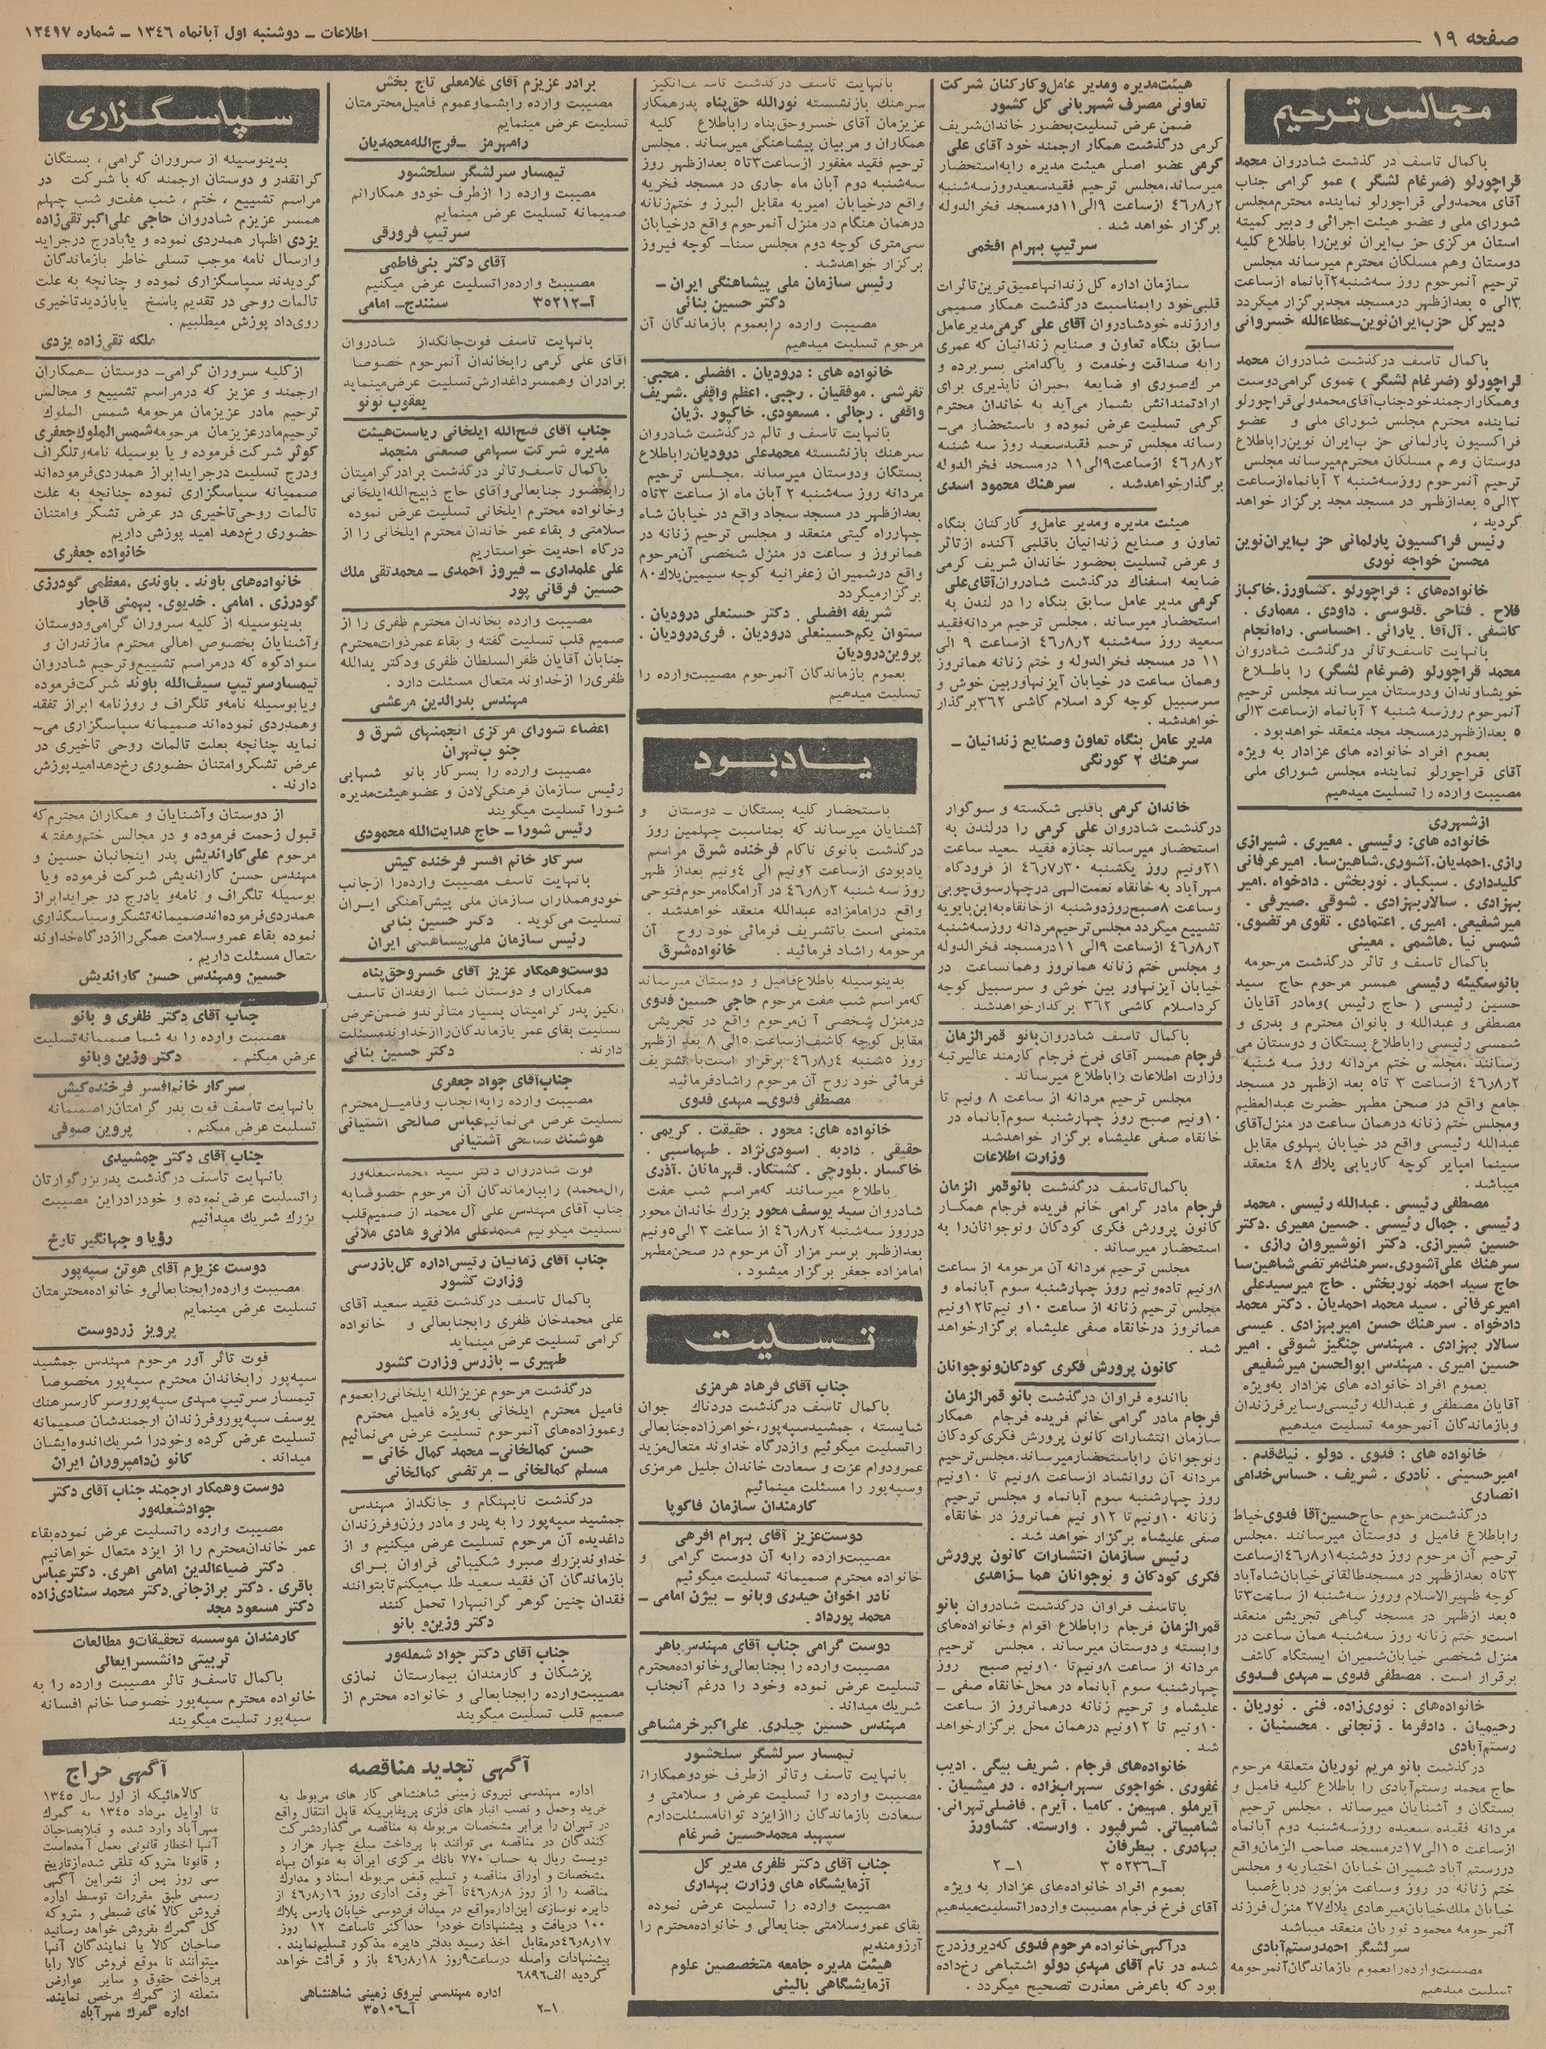 صفحه ۱۹
اطلاعات ـ دوشنبه اول آبانماه ۱۳۴۶ ـ شماره ۱۳۴۹۷
مجالس ترحیم
باکمال تاسف در گذشت شادروان محمد
قراچورلو (ضرغام لشگر) عمو گرامی جناب
آقای محمدولی قراچورلو نماینده محترم مجلس
شورای ملی و عضو هیئت اجرائی و دبیر کمیته
استان مرکزی حزب ایران نوین را باطلاع کلیه
دوستان وهم مسلکان محترم میرساند مجلس
ترحیم آنمرحوم روز سه شنبه ۲ آبانماه ازساعت
۳ الی ۵ بعد ازظهر درمسجد مجد برگزار میگردد
دبیر کل حزب ایران نوین ـ عطاءالله خسروانی
باکمال تاسف درگذشت شادروان محمد
قراچورلو (ضرغام لشگر) عموی گرامی دوست
وهمکار ارجمند خود جناب آقای محمدولی قراچورلو
نماینده محترم مجلس شورای ملی و عضو
فراکسیون پارلمانی حزب ایران نوین را باطلاع
دوستان وهم مسلکان محترم میرساند مجلس
ترحیم آنمرحوم روز سه شنبه ۲ آبانماه ازساعت
۳ الی ۵ بعدازظهر در مسجد مجد برگزار خواهد
گردید .
رئیس فراکسیون پارلمانی حزب ایران نوین
محسن خواجه نوری
خانواده‌های : قراچورلو . کشاورز . خاکباز
فلاح . فتاحی . قدوسی . داودی . معماری .
کاشفی . آل‌آقا . یارائی . احساسی . راه‌انجام
بانهایت تاسف وتاثر درگذشت شادروان
محمد قراچورلو (ضرغام لشگر) را باطلاع
خویشاوندان ودوستان میرساند مجلس ترحیم
آنمرحوم روز سه شنبه ۲ آبانماه ازساعت ۳ الی
۵ بعدازظهر درمسجد مجد منعقد خواهد بود .
بعموم افراد خانواده های عزادار به ویژه
آقای قراچورلو نماینده مجلس شورای ملی
مصیبت وارده را تسلیت میدهیم
ازشهرری
خانواده های: رئیسی . معیری . شیرازی
رازی . احمدیان . آشوری . شاهین‌سا . امیرعرفانی
کلیدداری . سبکبار . نوربخش . دادخواه . امیر
بهزادی . سالاربهزادی . شوقی . صیرفی .
میرشفیعی . امیری . اعتمادی . تقوی مرتضوی .
شمس نیا . هاشمی . معینی
باکمال تاسف و تاثر درگذشت مرحومه
بانوسکینه رئیسی همسر مرحوم حاج سید
حسین رئیسی ( حاج رئیس ) ومادر آقایان
مصطفی و عبدالله و بانوان محترم و بدری و
شمسی رئیسی را باطلاع بستگان و دوستان می
رسانند . مجلس ختم مردانه روز سه شنبه
۴۶ر۸ر۲ ازساعت ۳ تا ۵ بعد ازظهر در مسجد
جامع واقع در صحن مطهر حضرت عبدالعظیم
ومجلس ختم زنانه درهمان ساعت در منزل آقای
عبدالله رئیسی واقع در خیابان پهلوی مقابل
سینما امپایر کوچه کاریابی پلاک ۴۸ منعقد
میباشد .
مصطفی رئیسی . عبدالله رئیسی . محمد
رئیسی . جمال رئیسی . حسین معیری . دکتر
حسین شیرازی . دکتر انوشیروان رازی .
سرهنگ علی آشوری . سرهنگ مرتضی شاهین‌سا
حاج سید احمد نوربخش . حاج میرسیدعلی
امیرعرفانی . سید محمد احمدیان . دکتر محمد
دادخواه . سرهنگ حسن امیربهزادی . عیسی
سالار بهزادی . مهندس چنگیز شوقی . امیر
حسین امیری . مهندس ابوالحسن میرشفیعی
بعموم افراد خانواده های عزادار به‌ویژه
آقایان مصطفی و عبدالله رئیسی وسایر فرزندان
وبازماندگان آنمرحومه تسلیت میدهیم
خانواده های : فدوی . دولو . نیک‌قدم .
امیرحسینی . نادری . شریف . حساس خدامی
انصاری
درگذشت مرحوم حاج حسین‌آقا فدوی خیاط
را باطلاع فامیل و دوستان میرسانند . مجلس
ترحیم آن مرحوم روز دوشنبه ۴۶ر۸ر۱ ازساعت
۳ تا ۵ بعدازظهر در مسجد طالقانی خیابان شاه‌آباد
کوچه ظهیرالاسلام وروز سه‌شنبه از ساعت ۳ تا
۵ بعد ازظهر در مسجد گیاهی تجریش منعقد
است و ختم زنانه روز سه‌شنبه همان ساعت در
منزل شخصی خیابان شمیران ایستگاه کاشف
برقرار است . مصطفی فدوی ـ مهدی فدوی
خانواده‌های : نوری‌زاده . فنی . نوریان .
رحیمیان . دادفرما . زنجانی . محسنیان .
رستم‌آبادی
درگذشت بانو مریم نوریان متعلقه مرحوم
حاج محمد رستم‌آبادی را باطلاع کلیه فامیل و
بستگان و آشنایان میرساند . مجلس ترحیم
مردانه فقیده سعیده روز سه‌شنبه دوم آبانماه
ازساعت ۱۵ الی ۱۷ درمسجد صاحب الزمان واقع
دررستم آباد شمیران خیابان اختیاریه و مجلس
ختم زنانه در روز وساعت مزبور درباغ صبا
خیابان ملک خیابان میرهادی پلاک ۲۷ منزل فرزند
آنمرحومه محمود نوریان منعقد میباشد
سرلشگر احمد رستم‌آبادی
مصیبت وارده را بعموم بازماندگان آنمرحومه
تسلیت میدهیم
هیئت مدیره ومدیر عامل وکارکنان شرکت
تعاونی مصرف شهربانی کل کشور
ضمن عرض تسلیت بحضور خاندان شریف
کرمی درگذشت همکار ارجمند خود آقای علی
کرمی عضو اصلی هیئت مدیره را به‌استحضار
میرساند، مجلس ترحیم فقید سعید روز سه‌شنبه
۴۶ر۸ر۲ ازساعت ۹ الی ۱۱ درمسجد فخرالدوله
برگزار خواهد شد .
سرتیپ بهرام افخمی
سازمان اداره کل زندانها عمیق‌ترین تاثرات
قلبی خود را بمناسبت درگذشت همکار صمیمی
وارزنده خود شادروان آقای علی کرمی مدیر عامل
سابق بنگاه تعاون و صنایع زندانیان که عمری
را به صداقت وخدمت و پاکدامنی بسربرده و
مرگ صوری او ضایعه جبران ناپذیری برای
ارادتمندانش بشمار می‌آید به خاندان محترم
کرمی تسلیت عرض نموده و باستحضار می‌ـ
رساند مجلس ترحیم فقید سعید روز سه شنبه
۴۶ر۸ر۲ ازساعت ۹ الی ۱۱ درمسجد فخر الدوله
برگذار خواهد شد . سرهنک محمود اسدی
هیئت مدیره ومدیر عامل و کارکنان بنگاه
تعاون و صنایع زندانیان باقلبی آکنده ازتاثر
و عرض تسلیت بحضور خاندان شریف کرمی
ضایعه اسفناک درگذشت شادروان آقای علی
کرمی مدیر عامل سابق بنگاه را در لندن به
استحضار میرساند . مجلس ترحیم مردانه فقید
سعید روز سه‌شنبه ۴۶ر۸ر۲ ازساعت ۹ الی
۱۱ در مسجد فخر الدوله و ختم زنانه همانروز
وهمان ساعت در خیابان آیزنهاور بین خوش و
سرسبیل کوچه کرد اسلام کاشی ۳۶۲ برگذار
خواهد شد .
مدیر عامل بنگاه تعاون وصنایع زندانیان ـ
سرهنک ۲ کورنگی
خاندان کرمی باقلبی شکسته و سوگوار
درگذشت شادروان علی کرمی را درلندن به
استحضار میرساند جنازه فقید سعید ساعت
۲۱ونیم روز یکشنبه ۴۶ر۷ر۳۰ از فرودگاه
مهرآباد به خانقاه نعمت‌الهی درچهارسوق‌چوبی
وساعت ۸ صبح روز دوشنبه ازخانقاه به‌ابن‌بابویه
تشییع میگردد مجلس ترحیم مردانه روز سه‌شنبه
۴۶ر۸ر۲ ازساعت ۹ الی ۱۱ درمسجد فخر الدوله
و مجلس ختم زنانه همانروز وهمانساعت در
خیابان آیزنهاور بین خوش و سرسبیل کوچه
کرداسلام کاشی ۳۶۲ برگذار خواهد شد
باکمال تاسف شادروان بانو قمر الزمان
فرجام همسر آقای فرخ فرجام کارمند عالیرتبه
وزارت اطلاعات را باطلاع میرساند .
مجلس ترحیم مردانه از ساعت ۸ ونیم تا
۱۰ونیم صبح روز چهارشنبه سوم آبانماه در
خانقاه صفی علیشاه برگزار خواهد شد
وزارت اطلاعات
باکمال تاسف درگذشت بانو قمر الزمان
فرجام مادر گرامی خانم فریده فرجام همکار
کانون پرورش فکری کودکان ونوجوانان را به
استحضار میرساند .
مجلس ترحیم مردانه آن مرحومه از ساعت
۸ونیم تاده‌ونیم روز چهارشنبه سوم آبانماه و
مجلس ترحیم زنانه از ساعت ۱۰و نیم تا۱۲ونیم
همانروز درخانقاه صفی علیشاه برگزار خواهد
شد .
کانون پرورش فکری کودکان ونوجوانان
بااندوه فراوان درگذشت بانو قمرالزمان
فرجام مادر گرامی خانم فریده فرجام همکار
سازمان انتشارات کانون پرورش فکری کودکان
ونوجوانان را باستحضار میرساند . مجلس ترحیم
مردانه آن روانشاد ازساعت ۸ونیم تا ۱۰ونیم
روز چهارشنبه سوم آبانماه و مجلس ترحیم
زنانه ۱۰ونیم تا ۱۲و نیم همانروز در خانقاه
صفی علیشاه برگزار خواهد شد .
رئیس سازمان انتشارات کانون پرورش
فکری کودکان و نوجوانان هما ـ زاهدی
باتاسف فراوان درگذشت شادروان بانو
قمرالزمان فرجام را باطلاع اقوام وخانواده‌های
وابسته و دوستان میرساند . مجلس ترحیم
مردانه از ساعت ۸ونیم تا ۱۰ونیم صبح روز
چهارشنبه سوم آبانماه در محل خانقاه صفی ـ
علیشاه و ترحیم زنانه درهمانروز از ساعت
۱۰ونیم تا ۱۲ونیم درهمان محل برگزار خواهد
شد .
خانواده‌های فرجام . شریف بیگی . ادیب
غفوری . خواجوی . سهراب‌زاده . درمیشیان .
آیرملو . مهیمن . کامیا . آیرم . فاضلی تهرانی .
شامبیاتی . شرفپور . وارسته . کشاورز
بهادری . بیطرفان
آـ۳۵۲۳۶ ۱ـ۲
بعموم افراد خانواده‌های عزادار به ویژه
آقای فرخ فرجام مصیبت وارده را تسلیت میدهیم
درآگهی خانواده مرحوم فدوی که دیروز درج
شده در نام آقای مهدی دولو اشتباهی رخ‌داده
بود که باعرض معذرت تصحیح میگردد .
بانهایت تاسف درگذشت تاسف‌انگیز
سرهنک بازنشسته نورالله حق‌پناه پدر همکار
عزیزمان آقای خسرو حق‌پناه را باطلاع کلیه
همکاران و مربیان پیشاهنگی میرساند . مجلس
ترحیم فقید مغفور ازساعت ۳ تا ۵ بعدازظهر روز
سه‌شنبه دوم آبان ماه جاری در مسجد فخریه
واقع درخیابان امیریه مقابل البرز و ختم زنانه
درهمان هنگام در منزل آنمرحوم واقع درخیابان
سی‌متری کوچه دوم مجلس سنا ـ کوچه فیروز
برگزار خواهد شد .
رئیس سازمان ملی پیشاهنگی ایران ـ
دکتر حسین بنائی
مصیبت وارده را بعموم بازماندگان آن
مرحوم تسلیت میدهیم
خانواده های : درودیان . افضلی . محبی .
تفرشی . موفقیان . رجبی . اعظم واقفی . شریف
واقفی . رجالی . مسعودی . خاکپور . ژیان
بانهایت تاسف و تالم درگذشت شادروان
سرهنک بازنشسته محمدعلی درودیان را باطلاع
بستگان ودوستان میرساند . مجلس ترحیم
مردانه روز سه‌شنبه ۲ آبان ماه از ساعت ۳ تا ۵
بعدازظهر در مسجد سجاد واقع در خیابان شاه
چهارراه گیتی منعقد و مجلس ترحیم زنانه در
همانروز و ساعت در منزل شخصی آن‌مرحوم
واقع درشمیران زعفرانیه کوچه سیمین پلاک ۸۰
برگزار میگردد
شریفه افضلی . دکتر حسنعلی درودیان .
ستوان یکم حسینعلی درودیان . فری درودیان .
پروین درودیان
بعموم بازماندگان آنمرحوم مصیبت وارده را
تسلیت میدهیم
یادبود
باستحضار کلیه بستگان ـ دوستان و
آشنایان میرساند که بمناسبت چهلمین روز
درگذشت بانوی ناکام فرخنده شرق مراسم
یادبودی ازساعت ۲ونیم الی ۴ونیم بعداز ظهر
روز سه شنبه ۴۶ر۸ر۲ در آرامگاه مرحوم فتوحی
واقع درامامزاده عبدالله منعقد خواهد شد .
متمنی است باتشریف فرمائی خود روح آن
مرحومه را شاد فرمائید . خانواده شرق
بدینوسیله باطلاع فامیل و دوستان میرساند
که‌مراسم شب هفت مرحوم حاجی حسین فدوی
درمنزل شخصی آن‌مرحوم واقع در تجریش
مقابل کوچه کاشف ازساعت ۵ الی ۸ بعد ازظهر
روز ۵شنبه ۴۶ر۸ر۴ برقرار است باتشریف
فرمائی خود روح آن مرحوم را شاد فرمائید
مصطفی فدوی ـ مهدی فدوی
خانواده های: محور . حقیقت . کریمی .
حقیقی . دادبه . اسودی‌نژاد . طهماسبی .
خاکسار . بلورچی . کشتکار . قهرمانان . آذری
باطلاع میرسانند که‌مراسم شب هفت
شادروان سید یوسف محور بزرک خاندان محور
درروز سه‌شنبه ۴۶ر۸ر۲ از ساعت ۳ الی ۵ونیم
بعدازظهر برسر مزار آن مرحوم در صحن مطهر
امامزاده جعفر برگزار میشود .
تسلیت
جناب آقای فرهاد هرمزی
باکمال تاسف درگذشت دردناک جوان
شایسته ، جمشید سپه‌پور، خواهرزاده جنابعالی
را تسلیت میگوئیم وازدرگاه خداوند متعال مزید
عمرودوام عزت و سعادت خاندان جلیل هرمزی
وسپه‌پور را مسئلت مینمائیم
کارمندان سازمان فاکوپا
دوست عزیز آقای بهرام افرهی
مصیبت وارده را به آن دوست گرامی و
خانواده محترم صمیمانه تسلیت میگوئیم
نادر اخوان حیدری وبانو ـ بیژن امامی ـ
محمد پورداد .
دوست گرامی جناب آقای مهندس باهر
مصیبت وارده را بجنابعالی وخانواده محترم
تسلیت عرض نموده وخود را درغم آنجناب
شریک میداند .
مهندس حسین چیذری . علی‌اکبر خرمشاهی
تیمسار سرلشگر سلحشور
بانهایت تاسف وتاثر ازطرف خودوهمکارانم
مصیبت وارده را تسلیت عرض و سلامتی و
سعادت بازماندگان را ازایزد توانا مسئلت دارم
سپهبد محمدحسین ضرغام
جناب آقای دکتر ظفری مدیر کل
آزمایشگاه های وزارت بهداری
مصیبت وارده را تسلیت عرض نموده
بقای عمروسلامتی جنابعالی و خانواده محترم را
آرزومندیم
هیئت مدیره جامعه متخصصین علوم
آزمایشگاهی بالینی
برادر عزیزم آقای غلامعلی تاج بخش
مصیبت وارده را بشما وعموم فامیل محترمتان
تسلیت عرض مینمایم
رامهرمز ـ فرج‌الله محمدیان
تیمسار سرلشگر سلحشور
مصیبت وارده را ازطرف خودو همکارانم
صمیمانه تسلیت عرض مینمایم
سرتیپ فرورقی
آقای دکتر بنی‌فاطمی
مصیبت وارده را تسلیت عرض میکنیم
آـ۳۵۲۱۲ سنندج ـ امامی
بانهایت تاسف فوت جانگداز شادروان
آقای علی کرمی را بخاندان آنمرحوم خصوصا
برادران وهمسر داغدارش تسلیت عرض مینماید
یعقوب نونو
جناب آقای فتح‌الله ایلخانی ریاست هیئت
مدیره شرکت سهامی صنعتی منجمد
باکمال تاسف وتاثر درگذشت برادر گرامیتان
را بحضور جنابعالی وآقای حاج ذبیح‌الله ایلخانی
وخانواده محترم ایلخانی تسلیت عرض نموده
سلامتی و بقاء عمر خاندان محترم ایلخانی را از
درگاه احدیت خواستاریم
علی علمداری ـ فیروز احمدی ـ محمدتقی ملک
حسین فرقانی پور
مصیبت وارده را بخاندان محترم ظفری را از
صمیم قلب تسلیت گفته و بقاء عمر ذوات محترم
جنابان آقایان ظفرالسلطان ظفری ودکتر یدالله
ظفری را ازخداوند متعال مسئلت دارد .
مهندس بدرالدین مرعشی
اعضاء شورای مرکزی انجمنهای شرق و
جنوب تهران
مصیبت وارده را بسرکار بانو شهابی
رئیس سازمان فرهنگی لادن و عضوهیئت‌مدیره
شورا تسلیت میگویند
رئیس شورا ـ حاج هدایت‌الله محمودی
سرکار خانم افسر فرخنده کیش
بانهایت تاسف مصیبت وارده را ازجانب
خودوهمکاران سازمان ملی پیش‌آهنگی ایران
تسلیت می‌گوید . دکتر حسین بنائی
رئیس سازمان ملی پیشاهنگی ایران
دوست وهمکار عزیز آقای خسرو حق‌پناه
همکاران و دوستان شما ازفقدان تاسف
انگیز پدر گرامیتان بسیار متاثرند و ضمن عرض
تسلیت بقای عمر بازماندگان را ازخداوند مسئلت
دارند . دکتر حسین بنائی
جناب آقای جواد جعفری
مصیبت وارده را به‌آنجناب وفامیل محترم
تسلیت عرض می‌نمائیم عباس صالحی آشتیانی
هوشنک صالحی آشتیانی
فوت شادروان دکتر سید محمد شعله‌ور
(آل‌محمد) را ببازماندگان آن مرحوم خصوصا به
جناب آقای مهندس علی آل محمد از صمیم قلب
تسلیت میگوئیم محمدعلی ملائی و هادی ملائی
جناب آقای زمانیان رئیس اداره کل بازرسی
وزارت کشور
باکمال تاسف درگذشت فقید سعید آقای
علی محمدخان ظفری را بجنابعالی و خانواده
گرامی تسلیت عرض مینماید
طهیری ـ بازرس وزارت کشور
درگذشت مرحوم عزیزالله ایلخانی را بعموم
فامیل محترم ایلخانی به‌ویژه فامیل محترم
وعموزاده‌های آنمرحوم تسلیت عرض می‌نمائیم
حسن کمالخانی ـ محمد کمال خانی ـ
مسلم کمالخانی ـ مرتضی کمالخانی
درگذشت نابهنگام و جانگداز مهندس
جمشید سپه‌پور را به پدر و مادر وزن وفرزندان
داغدیده آن مرحوم تسلیت عرض میکنیم و از
خداوند بزرک صبرو شکیبائی فراوان برای
بازماندگان آن فقید سعید طلب میکنم تابتوانند
فقدان چنین گوهر گرانبهارا تحمل کنند
دکتر وزین‌و بانو
جناب آقای دکتر جواد شعله‌ور
پزشکان و کارمندان بیمارستان نمازی
مصیبت وارده را بجنابعالی و خانواده محترم از
صمیم قلب تسلیت میگویند
سپاسگزاری
بدینوسیله از سروران گرامی ، بستگان
گرانقدر و دوستان ارجمند که با شرکت در
مراسم تشییع ، ختم ، شب هفت و شب چهلم
همسر عزیزم شادروان حاجی علی‌اکبر تقی‌زاده
یزدی اظهار همدردی نموده و یا بادرج درجراید
وارسال نامه موجب تسلی خاطر بازماندگان
گردیدند سپاسگزاری نموده و چنانچه به علت
تالمات روحی در تقدیم پاسخ یا بازدید تاخیری
روی‌داد پوزش میطلبیم .
ملکه تقی‌زاده یزدی
ازکلیه سروران گرامی ـ دوستان ـ همکاران
ارجمند و عزیز که درمراسم تشییع و مجالس
ترحیم مادر عزیزمان مرحومه شمس الملوک
ترحیم مادر عزیزمان مرحومه شمس‌الملوک جعفری
کوثر شرکت فرموده و یا بوسیله نامه وتلگراف
ودرج تسلیت درجراید ابراز همدردی فرموده‌اند
صمیمانه سپاسگزاری نموده چنانچه به علت
تالمات روحی تاخیری در عرض تشکر وامتنان
حضوری رخ‌دهد امید پوزش داریم
خانواده جعفری
خانواده‌های باوند . باوندی . معظمی گودرزی
گودرزی . امامی . خدیوی . بهمنی قاجار
بدینوسیله از کلیه سروران گرامی ودوستان
وآشنایان بخصوص اهالی محترم مازندران و
سوادکوه که درمراسم تشییع وترحیم شادروان
تیمسار سرتیپ سیف‌الله باوند شرکت فرموده
ویابوسیله نامه‌و تلگراف و روزنامه ابراز تفقد
وهمدردی نموده‌اند صمیمانه سپاسگزاری می‌ـ
نماید چنانچه بعلت تالمات روحی تاخیری در
عرض تشکر وامتنان حضوری رخ‌دهد امید پوزش
دارند .
از دوستان وآشنایان و همکاران محترم که
قبول زحمت فرموده و در مجالس ختم وهفته
مرحوم علی کاراندیش پدر اینجانبان حسین و
مهندس حسن کاراندیش شرکت فرموده ویا
بوسیله تلگراف و نامه‌و یادرج در جراید ابراز
همدردی فرموده اند صمیمانه تشکر وسپاسگذاری
نموده بقاء عمر وسلامت همگی را ازدرگاه خداوند
متعال مسئلت داریم .
حسین ومهندس حسن کاراندیش
جناب آقای دکتر ظفری و بانو
مصیبت وارده را به شما صمیمانه تسلیت
عرض میکنم . دکتر وزین وبانو
سرکار خانم افسر فرخنده‌کیش
بانهایت تاسف فوت پدر گرامتان را صمیمانه
تسلیت عرض میکنم . پروین صوفی
جناب آقای دکتر جمشیدی
بانهایت تاسف درگذشت پدربزرگوارتان
را تسلیت عرض نموده و خودرا دراین مصیبت
بزرک شریک میدانیم
رؤیا و جهانگیر تارخ
دوست عزیزم آقای هوتن سپه‌پور
مصیبت وارده را بجنابعالی و خانواده محترمتان
تسلیت عرض مینمایم
پرویز زردوست
فوت تاثر آور مرحوم مهندس جمشید
سپه‌پور را بخاندان محترم سپه‌پور مخصوصا
تیمسار سرتیپ مهدی سپه‌پور وسرکار سرهنک
یوسف سپه‌پور وفرزندان ارجمندشان صمیمانه
تسلیت عرض کرده وخودرا شریک اندوه‌ایشان
میداند . کانون دامپروران ایران
دوست وهمکار ارجمند جناب آقای دکتر
جواد شعله‌ور
مصیبت وارده را تسلیت عرض نموده بقاء
عمر خاندان محترم را از ایزد متعال خواهانیم
دکتر ضیاءالدین امامی اهری . دکتر عباس
باقری . دکتر برازجانی . دکتر محمد سنادی‌زاده
دکتر مسعود مجد
کارمندان موسسه تحقیقات‌و مطالعات
تربیتی دانشسرایعالی
باکمال تاسف‌و تاثر مصیبت وارده را به
خانواده محترم سپه‌پور خصوصا خانم افسانه
سپه‌پور تسلیت میگویند
آگهی تجدید مناقصه
اداره مهندسی نیروی زمینی شاهنشاهی کار های مربوط به
خرید وحمل و نصب انبار های فلزی پریفابریکه قابل انتقال واقع
در تهران را برابر مشخصات مربوطه به مناقصه می گذارد شرکت
کنندگان در مناقصه می توانند با پرداخت مبلغ چهار هزار و
دویست ریال به حساب ۷۷۰ بانک مرکزی ایران به عنوان بهاء
مشخصات و اوراق مناقصه و تسلیم قبض مربوطه اسناد و مدارک
مناقصه را از روز ۴۶ر۸ر۸ تا آخر وقت اداری روز ۴۶ر۸ر۱۶ از
دایره نوسازی این‌اداره واقع در میدان فردوسی خیابان پارس پلاک
۱۰۰ دریافت و پیشنهادات خودرا حداکثر تاساعت ۱۲ روز
۴۶ر۸ر۱۷ درمقابل اخذ رسید بدفتر دایره مذکور تسلیم نمایند .
پیشنهادات واصله درساعت ۹ روز ۴۶ر۸ر۱۸ باز و قرائت خواهد
گردید الف ۶۸۹۶
اداره مهندسی نیروی زمینی شاهنشاهی
۱ـ۲ آـ۳۵۱۰۶
آگهی حراج
کالاهائیکه از اول سال ۱۳۴۵
تا اوایل مرداد ۱۳۴۵ به گمرک
مهرآباد وارد شده و قبلا بصاحبان
آنها اخطار قانونی بعمل آمده‌است
و قانونا متروکه تلقی شده ازتاریخ
سی روز پس از نشر این آگهی
رسمی طبق مقررات توسط اداره
فروش کالا های ضبطی و متروکه
کل گمرک بفروش خواهد رسانید
صاحبان کالا یا نمایندگان آنها
میتوانند تا موقع فروش کالا رابا
پرداخت حقوق و سایر عوارض
متعلقه از گمرک مرخص نمایند .
اداره گمرک مهرآباد